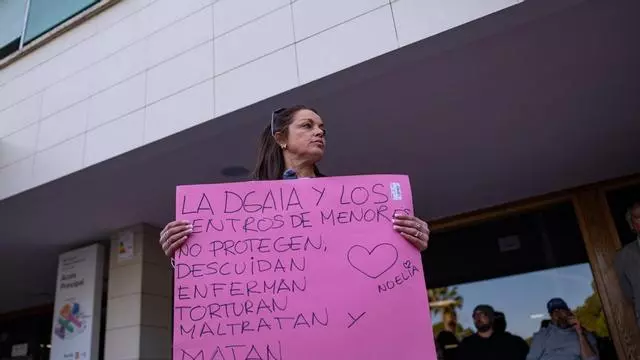 LA DGAIA Y LOS
CENTROS DE MENORES
NO PROTEGEN,
DESCUIDAN
ENFERMAN
TORTURAN
MALTRATAN Y
MATAN
NOELIA
Accés
Principal